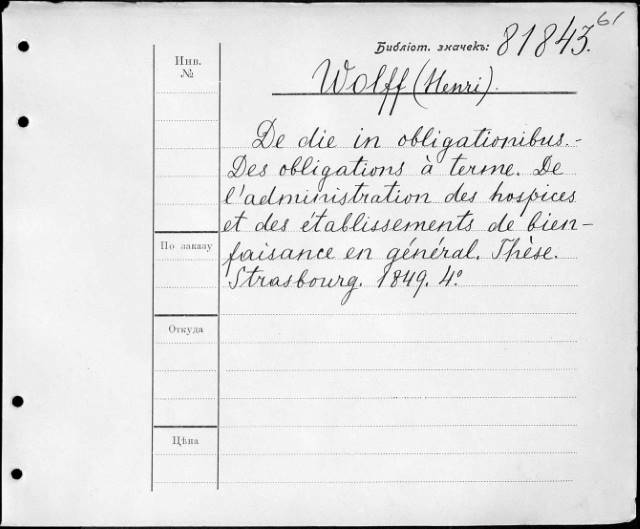 61
Библіот. значекъ: 81843.
Инв.
№
Wolff (Henri).
De die in obligationibus.-
Des obligations à terme. De
l'administration des hospices
et des établissements de bien-
faisance en général. Thèse.
Strasbourg. 1849. 4º
По заказу
Откуда
Цѣна